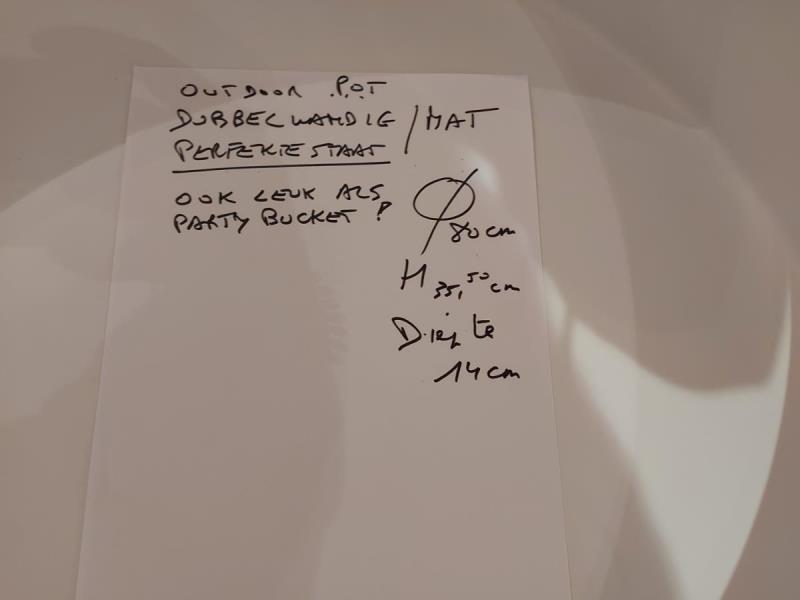 OUTDOOR POT
DUBBELWANDIG / MAT
PERFEKTE STAAT
OOK LEUK ALS
PARTY BUCKET!
Ø 80 cm
H 35,50 cm
Diepte
14 cm